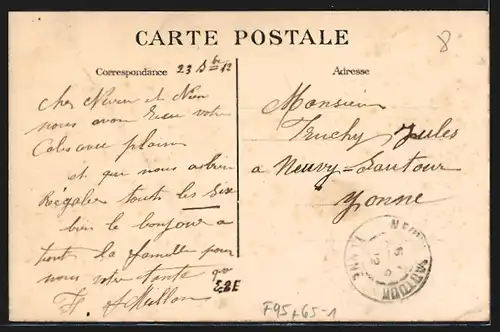 CARTE POSTALE
8
Correspondance
Adresse
23 Dbre 12
cher Neveu et Nièce
nous avon Recu votre
Colis avec plaisir
et que nous a bien
Régalier touts les six
bien le bonjour a
tout la famille pour
nous votre tante
Monsieur
Truchy Jules
a Neuvy-Sautour
Yonne
NEUVY SAUTOUR
YONNE
F95+65-1